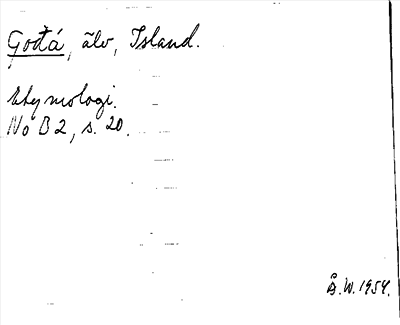 Gođá, älv, Island.
Etymologi.
No B 2, s. 20.
Å.W. 1954.